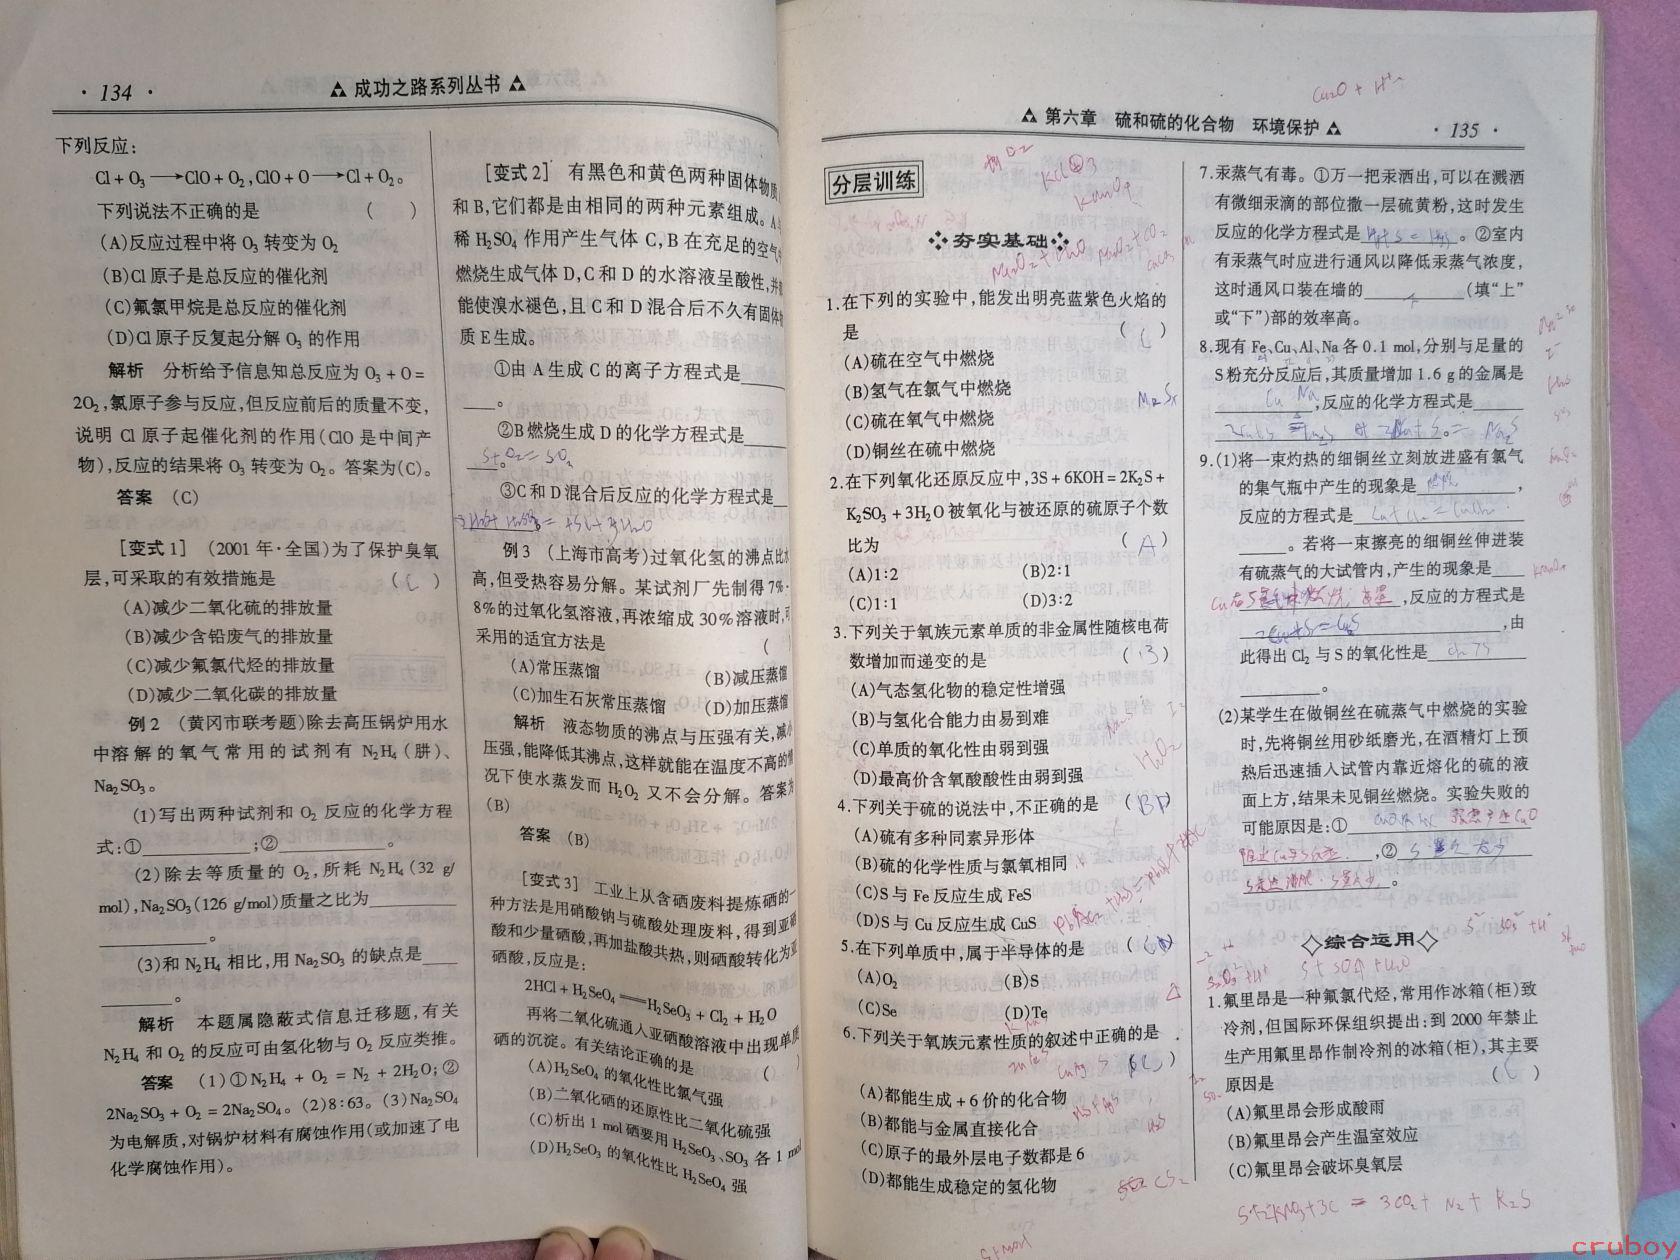 · 134 ·
成功之路系列丛书
下列反应:
Cl + O₃ ⟶ ClO + O₂,ClO + O ⟶ Cl + O₂。
下列说法不正确的是 ( )
(A)反应过程中将 O₃ 转变为 O₂
(B)Cl 原子是总反应的催化剂
(C)氟氯甲烷是总反应的催化剂
(D)Cl 原子反复起分解 O₃ 的作用
解析 分析给予信息知总反应为 O₃ + O =
2O₂,氯原子参与反应,但反应前后的质量不变,
说明 Cl 原子起催化剂的作用(ClO 是中间产
物),反应的结果将 O₃ 转变为 O₂。答案为(C)。
答案 (C)
[变式 1] (2001 年·全国)为了保护臭氧
层,可采取的有效措施是 (C)
(A)减少二氧化硫的排放量
(B)减少含铅废气的排放量
(C)减少氟氯代烃的排放量
(D)减少二氧化碳的排放量
例 2 (黄冈市联考题)除去高压锅炉用水
中溶解的氧气常用的试剂有 N₂H₄(肼)、
Na₂SO₃。
(1)写出两种试剂和 O₂ 反应的化学方程
式:①;②。
(2)除去等质量的 O₂,所耗 N₂H₄(32 g/
mol),Na₂SO₃(126 g/mol)质量之比为
。
(3)和 N₂H₄ 相比,用 Na₂SO₃ 的缺点是
。
解析 本题属隐蔽式信息迁移题,有关
N₂H₄ 和 O₂ 的反应可由氢化物与 O₂ 反应类推。
答案 (1)①N₂H₄ + O₂ = N₂ + 2H₂O;②
2Na₂SO₃ + O₂ = 2Na₂SO₄。(2)8:63。(3)Na₂SO₄
为电解质,对锅炉材料有腐蚀作用(或加速了电
化学腐蚀作用)。
[变式 2] 有黑色和黄色两种固体物质
和 B,它们都是由相同的两种元素组成。A
稀 H₂SO₄ 作用产生气体 C,B 在充足的空气
燃烧生成气体 D,C 和 D 的水溶液呈酸性,并
能使溴水褪色,且 C 和 D 混合后不久有固体
质 E 生成。
①由 A 生成 C 的离子方程式是
。
②B 燃烧生成 D 的化学方程式是
S+O₂=SO₂。
③C 和 D 混合后反应的化学方程式是
例 3 (上海市高考)过氧化氢的沸点比水
高,但受热容易分解。某试剂厂先制得 7%~
8%的过氧化氢溶液,再浓缩成 30%溶液时,可
采用的适宜方法是 (
(A)常压蒸馏 (B)减压蒸馏
(C)加生石灰常压蒸馏 (D)加压蒸馏
解析 液态物质的沸点与压强有关,减小
压强,能降低其沸点,这样就能在温度不高的情
况下使水蒸发而 H₂O₂ 又不会分解。答案为
(B)
答案 (B)
[变式 3] 工业上从含硒废料提炼硒的一
种方法是用硝酸钠与硫酸处理废料,得到亚硒
酸和少量硒酸,再加盐酸共热,则硒酸转化为亚
硒酸,反应是:
2HCl + H₂SeO₄ ══ H₂SeO₃ + Cl₂ + H₂O
再将二氧化硫通入亚硒酸溶液中出现单质
硒的沉淀。有关结论正确的是 ( )
(A)H₂SeO₄ 的氧化性比氯气强
(B)二氧化硒的还原性比二氧化硫强
(C)析出 1 mol 硒要用 H₂SeO₃、SO₃ 各 1 mol
(D)H₂SeO₃ 的氧化性比 H₂SeO₄ 强
第六章 硫和硫的化合物 环境保护
· 135 ·
分层训练
夯实基础
1.在下列的实验中,能发出明亮蓝紫色火焰的
是 (C)
(A)硫在空气中燃烧
(B)氢气在氯气中燃烧
(C)硫在氧气中燃烧
(D)铜丝在硫中燃烧
2.在下列氧化还原反应中,3S + 6KOH = 2K₂S +
K₂SO₃ + 3H₂O 被氧化与被还原的硫原子个数
比为 (A)
(A)1:2 (B)2:1
(C)1:1 (D)3:2
3.下列关于氧族元素单质的非金属性随核电荷
数增加而递变的是 (B)
(A)气态氢化物的稳定性增强
(B)与氢化合能力由易到难
(C)单质的氧化性由弱到强
(D)最高价含氧酸酸性由弱到强
4.下列关于硫的说法中,不正确的是 (BD)
(A)硫有多种同素异形体
(B)硫的化学性质与氯氧相同
(C)S 与 Fe 反应生成 FeS
(D)S 与 Cu 反应生成 CuS
5.在下列单质中,属于半导体的是
(A)O₂ (B)S
(C)Se (D)Te
6.下列关于氧族元素性质的叙述中正确的是
(A)都能生成 + 6 价的化合物
(B)都能与金属直接化合
(C)原子的最外层电子数都是 6
(D)都能生成稳定的氢化物
7.汞蒸气有毒。①万一把汞洒出,可以在溅洒
有微细汞滴的部位撒一层硫黄粉,这时发生
反应的化学方程式是 Hg+S=HgS。②室内
有汞蒸气时应进行通风以降低汞蒸气浓度,
这时通风口装在墙的(填“上”
或“下”)部的效率高。
8.现有 Fe、Cu、Al、Na 各 0.1 mol,分别与足量的
S 粉充分反应后,其质量增加 1.6 g 的金属是
Cu Na,反应的化学方程式是
9.(1)将一束灼热的细铜丝立刻放进盛有氯气
的集气瓶中产生的现象是,
反应的方程式是
。若将一束擦亮的细铜丝伸进装
有硫蒸气的大试管内,产生的现象是
,反应的方程式是
,由
此得出 Cl₂ 与 S 的氧化性是
。
(2)某学生在做铜丝在硫蒸气中燃烧的实验
时,先将铜丝用砂纸磨光,在酒精灯上预
热后迅速插入试管内靠近熔化的硫的液
面上方,结果未见铜丝燃烧。实验失败的
可能原因是:①
,②
。
综合运用
1.氟里昂是一种氟氯代烃,常用作冰箱(柜)致
冷剂,但国际环保组织提出:到 2000 年禁止
生产用氟里昂作制冷剂的冰箱(柜),其主要
原因是 (C)
(A)氟里昂会形成酸雨
(B)氟里昂会产生温室效应
(C)氟里昂会破坏臭氧层
S+2KNO₃+3C = 3CO₂+ N₂ + K₂S
cruboy